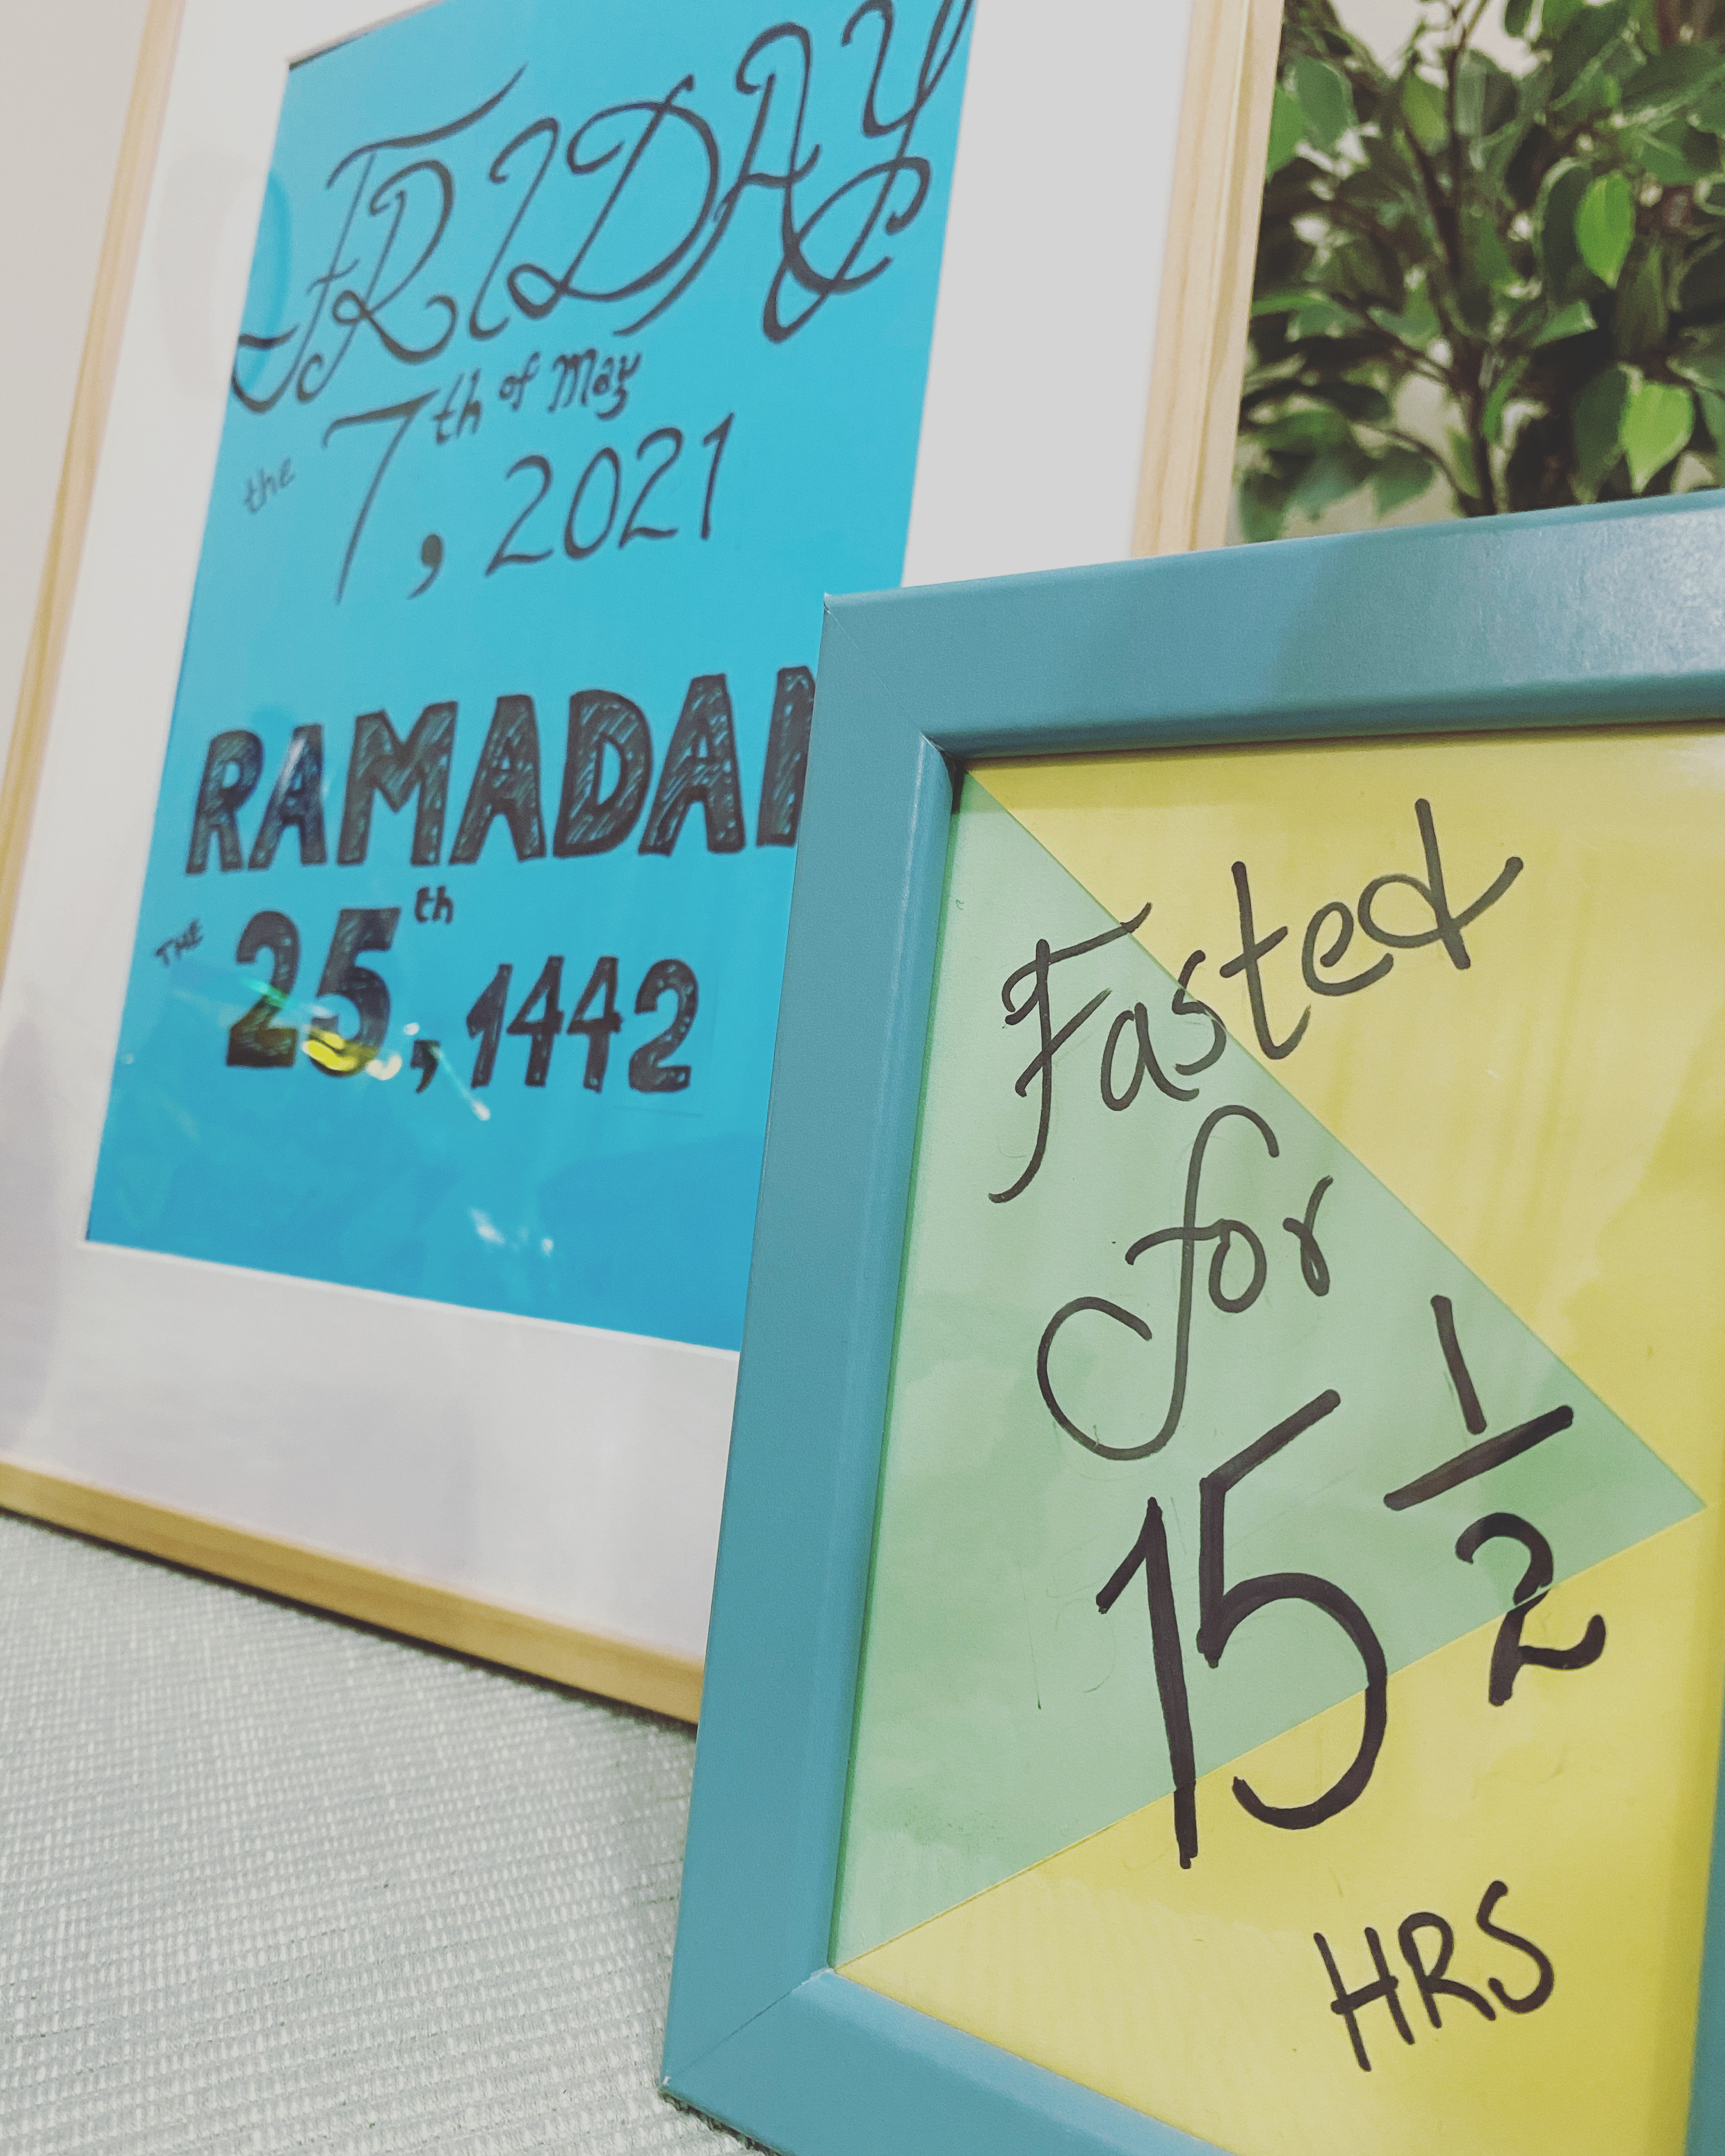 FRIDAY
the 7th of May, 2021
RAMADAN
THE 25th, 1442
Fasted
for
15 1/2
HRS